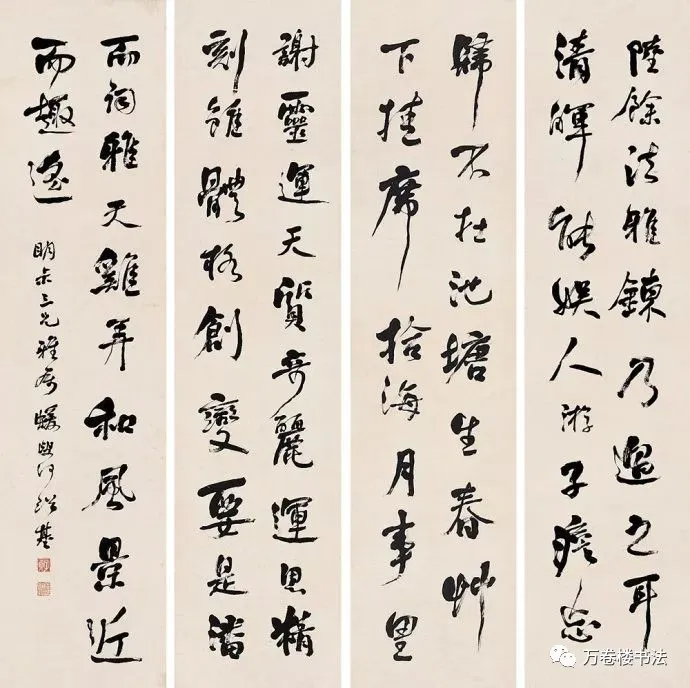 陸餘法雅鍊乃過之耳
清暉能娛人游子憺忘
歸不在池塘生春艸
下挂席拾海月事里
謝靈運天質奇麗運思精
刻雖體格創變要是潘
而詞雅天雞弄和風景近
而趣遙
三兄雅屬 蝯叟何紹基
万卷楼书法